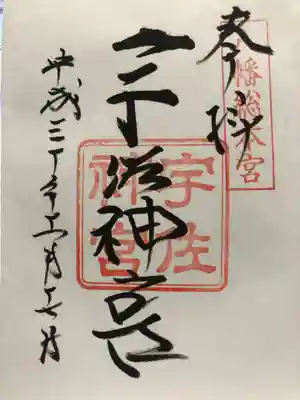 八幡総本宮
奉拝
宇佐神宮
宇佐
神宮
平成三十年